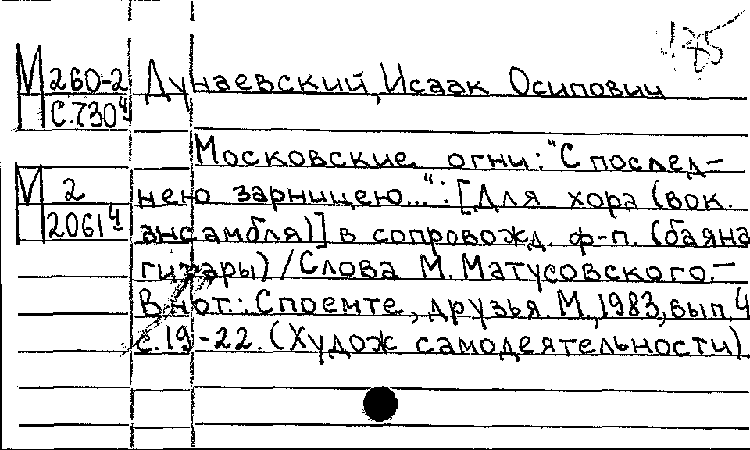 185
М 260-2 Дунаевский, Исаак Осипович
П С.730ч
Московские огни: "С послед-
М 2 нею зарницею...": [Для хора (вок.
П 2061ч ансамбля)] в сопровожд. ф-п. (баяна
гитары) / Слова М. Матусовского. -
В нот.: Споемте, друзья М., 1983, вып. 4
с. 19-22. (Худож самодеятельности)